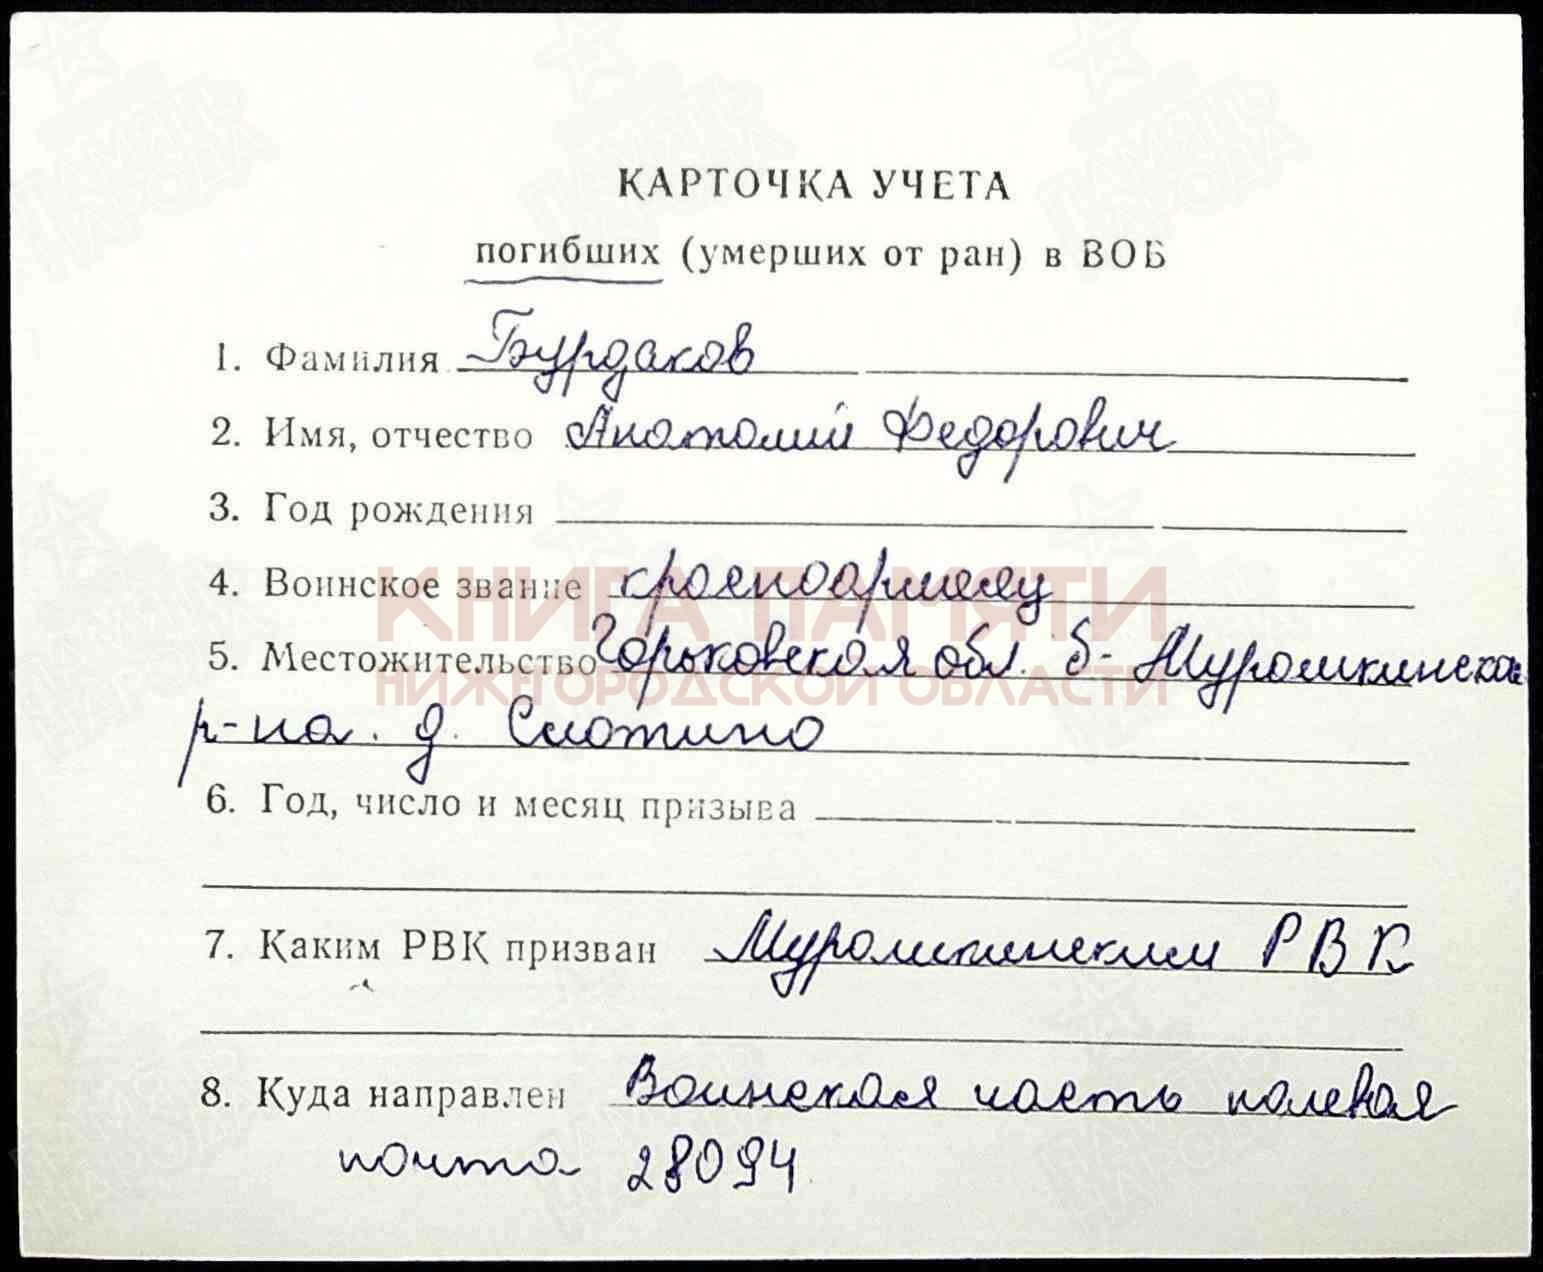 КАРТОЧКА УЧЕТА
погибших (умерших от ран) в ВОВ
1. Фамилия Бурдаков
2. Имя, отчество Анатолий Федорович
3. Год рождения
4. Воинское звание красноармеец
КНИГА ПАМЯТИ
5. Местожительство Горьковская обл. Б-Мурашкинско
НИЖЕГОРОДСКОЙ ОБЛАСТИ
р-на. д. Скотино
6. Год, число и месяц призыва
7. Каким РВК призван Мурашкинским РВК
8. Куда направлен Воинская часть полевая
почта 28094